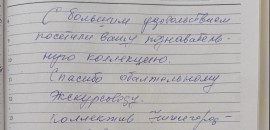 С большим удовольствием
посетили вашу познаватель-
ную коллекцию.
Спасибо обаятельному
экскурсоводу.
Коллектив Нижегород-